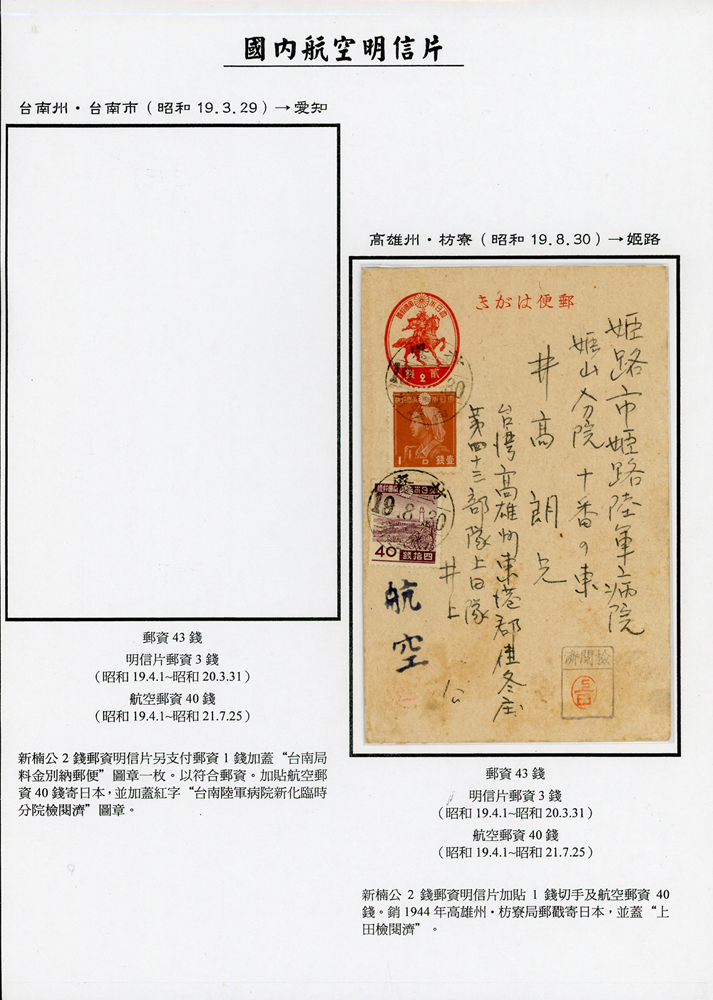 國內航空明信片
台南州・台南市（昭和 19.3.29）→愛知
郵資 43 錢
明信片郵資 3 錢
（昭和 19.4.1~昭和 20.3.31）
航空郵資 40 錢
（昭和 19.4.1~昭和 21.7.25）
新楠公 2 錢郵資明信片另支付郵資 1 錢加蓋“台南局
料金別納郵便”圖章一枚。以符合郵資。加貼航空郵
資 40 錢寄日本，並加蓋紅字“台南陸軍病院新化臨時
分院檢閱濟”圖章。
高雄州・枋寮（昭和 19.8.30）→姫路
きがは便郵
錢 2 貳
姫路市姫路陸軍病院
姫山分院十番の東
井高朗兄
台湾高雄州東港郡佳冬庄
第四十三部隊上田隊
井上
公
1 錢壹
19.8.30
40 錢拾四
航空
濟閱檢
上田
郵資 43 錢
明信片郵資 3 錢
（昭和 19.4.1~昭和 20.3.31）
航空郵資 40 錢
（昭和 19.4.1~昭和 21.7.25）
新楠公 2 錢郵資明信片加貼 1 錢切手及航空郵資 40
錢。銷 1944 年高雄州・枋寮局郵戳寄日本，並蓋“上
田檢閱濟”。